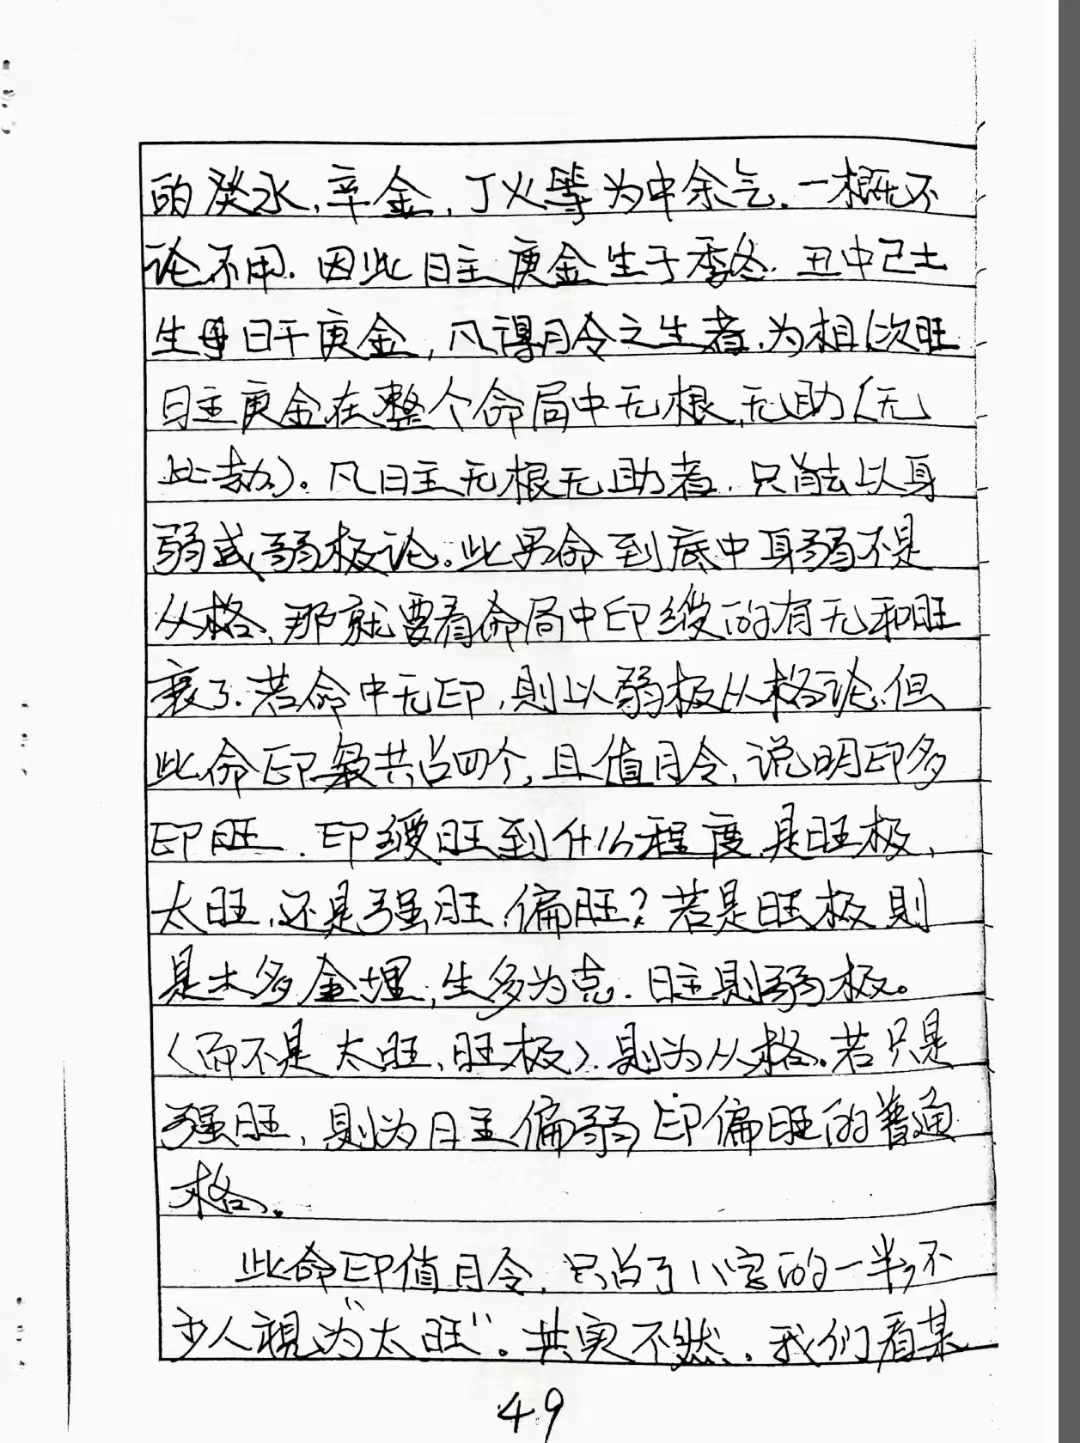 的癸水,辛金,丁火等为中余气.一概不
论不用.因此日主庚金生于季冬.丑中己土
生日干庚金,凡得月令之生者,为相(次旺
日主庚金在整个命局中无根,无助(无
比劫)。凡日主无根无助者.只能以身
弱或弱极论。此男命到底中身弱不是
从格,那就要看命局中印绶的有无和旺
衰了.若命中无印,则以弱极从格论.但
此命印枭共占四个,且值月令,说明印多
印旺.印绶旺到什么程度.是旺极,
太旺,还是强旺,偏旺?若是旺极则
是土多金埋,生多为克.日主则弱极。
(而不是太旺,旺极).则为从格。若只是
强旺,则为日主偏弱,印偏旺的普通
格。
此命印值月令,只占了八字的一半,不
少人视为“太旺”。其实不然。我们看某
49